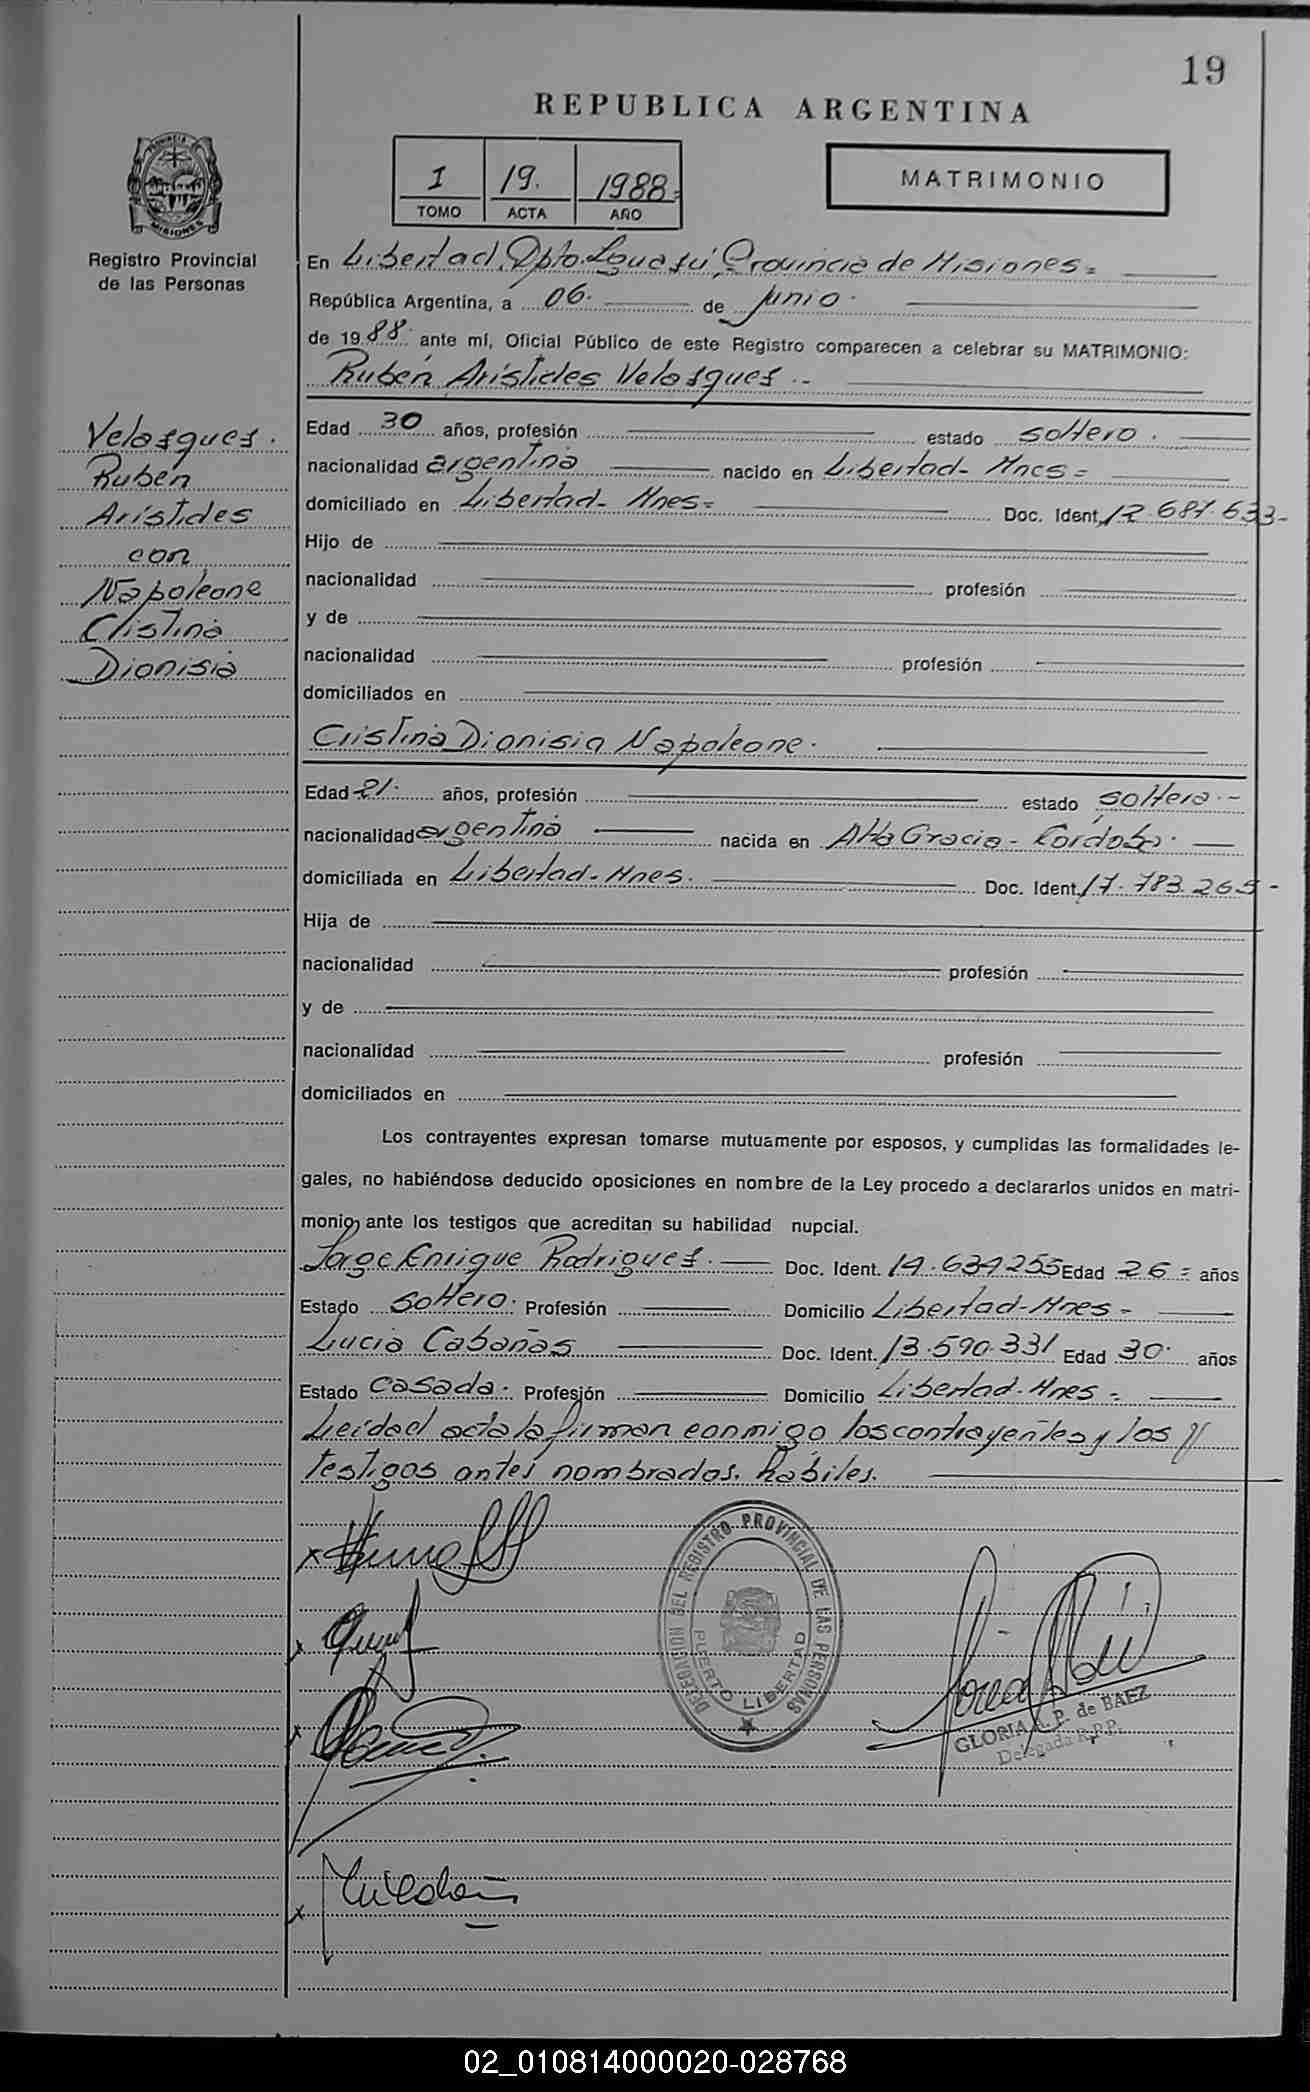 19
REPUBLICA ARGENTINA
PROVINCIA DE MISIONES
Registro Provincial
de las Personas
1 TOMO 19. ACTA 1988= AÑO
MATRIMONIO
En Libertad, Dpto. Iguazú, Provincia de Misiones=
República Argentina, a 06. de junio.
de 1988. ante mí, Oficial Público de este Registro comparecen a celebrar su MATRIMONIO:
Rubén Arístides Velasques.-
Velasques.
Ruben
Arístides
con
Napoleone
Cristina
Dionisia
Edad 30 años, profesión estado soltero.
nacionalidad argentina nacido en Libertad- Mnes=
domiciliado en Libertad- Mnes= Doc. Ident. 12.687.633-
Hijo de
nacionalidad profesión
y de
nacionalidad profesión
domiciliados en
Cristina Dionisia Napoleone.
Edad 21. años, profesión estado soltera.-
nacionalidad argentina nacida en Alta Gracia- Córdoba.
domiciliada en Libertad- Mnes. Doc. Ident. 17.783.265-
Hija de
nacionalidad profesión
y de
nacionalidad profesión
domiciliados en
Los contrayentes expresan tomarse mutuamente por esposos, y cumplidas las formalidades le-
gales, no habiéndose deducido oposiciones en nombre de la Ley procedo a declararlos unidos en matri-
monio, ante los testigos que acreditan su habilidad nupcial.
Jorge Enrique Rodrigues. Doc. Ident. 14.634255 Edad 26= años
Estado soltero. Profesión Domicilio Libertad-Mnes-
Lucia Cabañas Doc. Ident. 13.590.331 Edad 30. años
Estado casada. Profesión Domicilio Libertad- Mnes-
Leída el acta la firman conmigo los contrayentes y los
testigos antes nombrados. hábiles.
DELEGACION DEL REGISTRO PROVINCIAL DE LAS PERSONAS
PUERTO LIBERTAD
GLORIA A. P. de BAEZ
Delegada R.P.P.
02_010814000020-028768